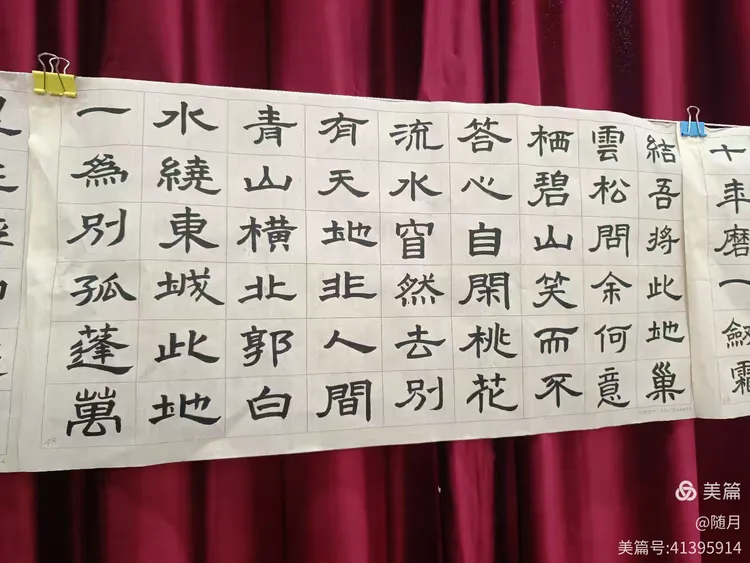 十年磨一劔霜
結吾將此地巢
雲松問余何意
栖碧山笑而不
答心自閑桃花
流水窅然去別
有天地非人間
青山橫北郭白
水繞東城此地
一為別孤蓬萬
美篇
@随月
美篇号:41395914